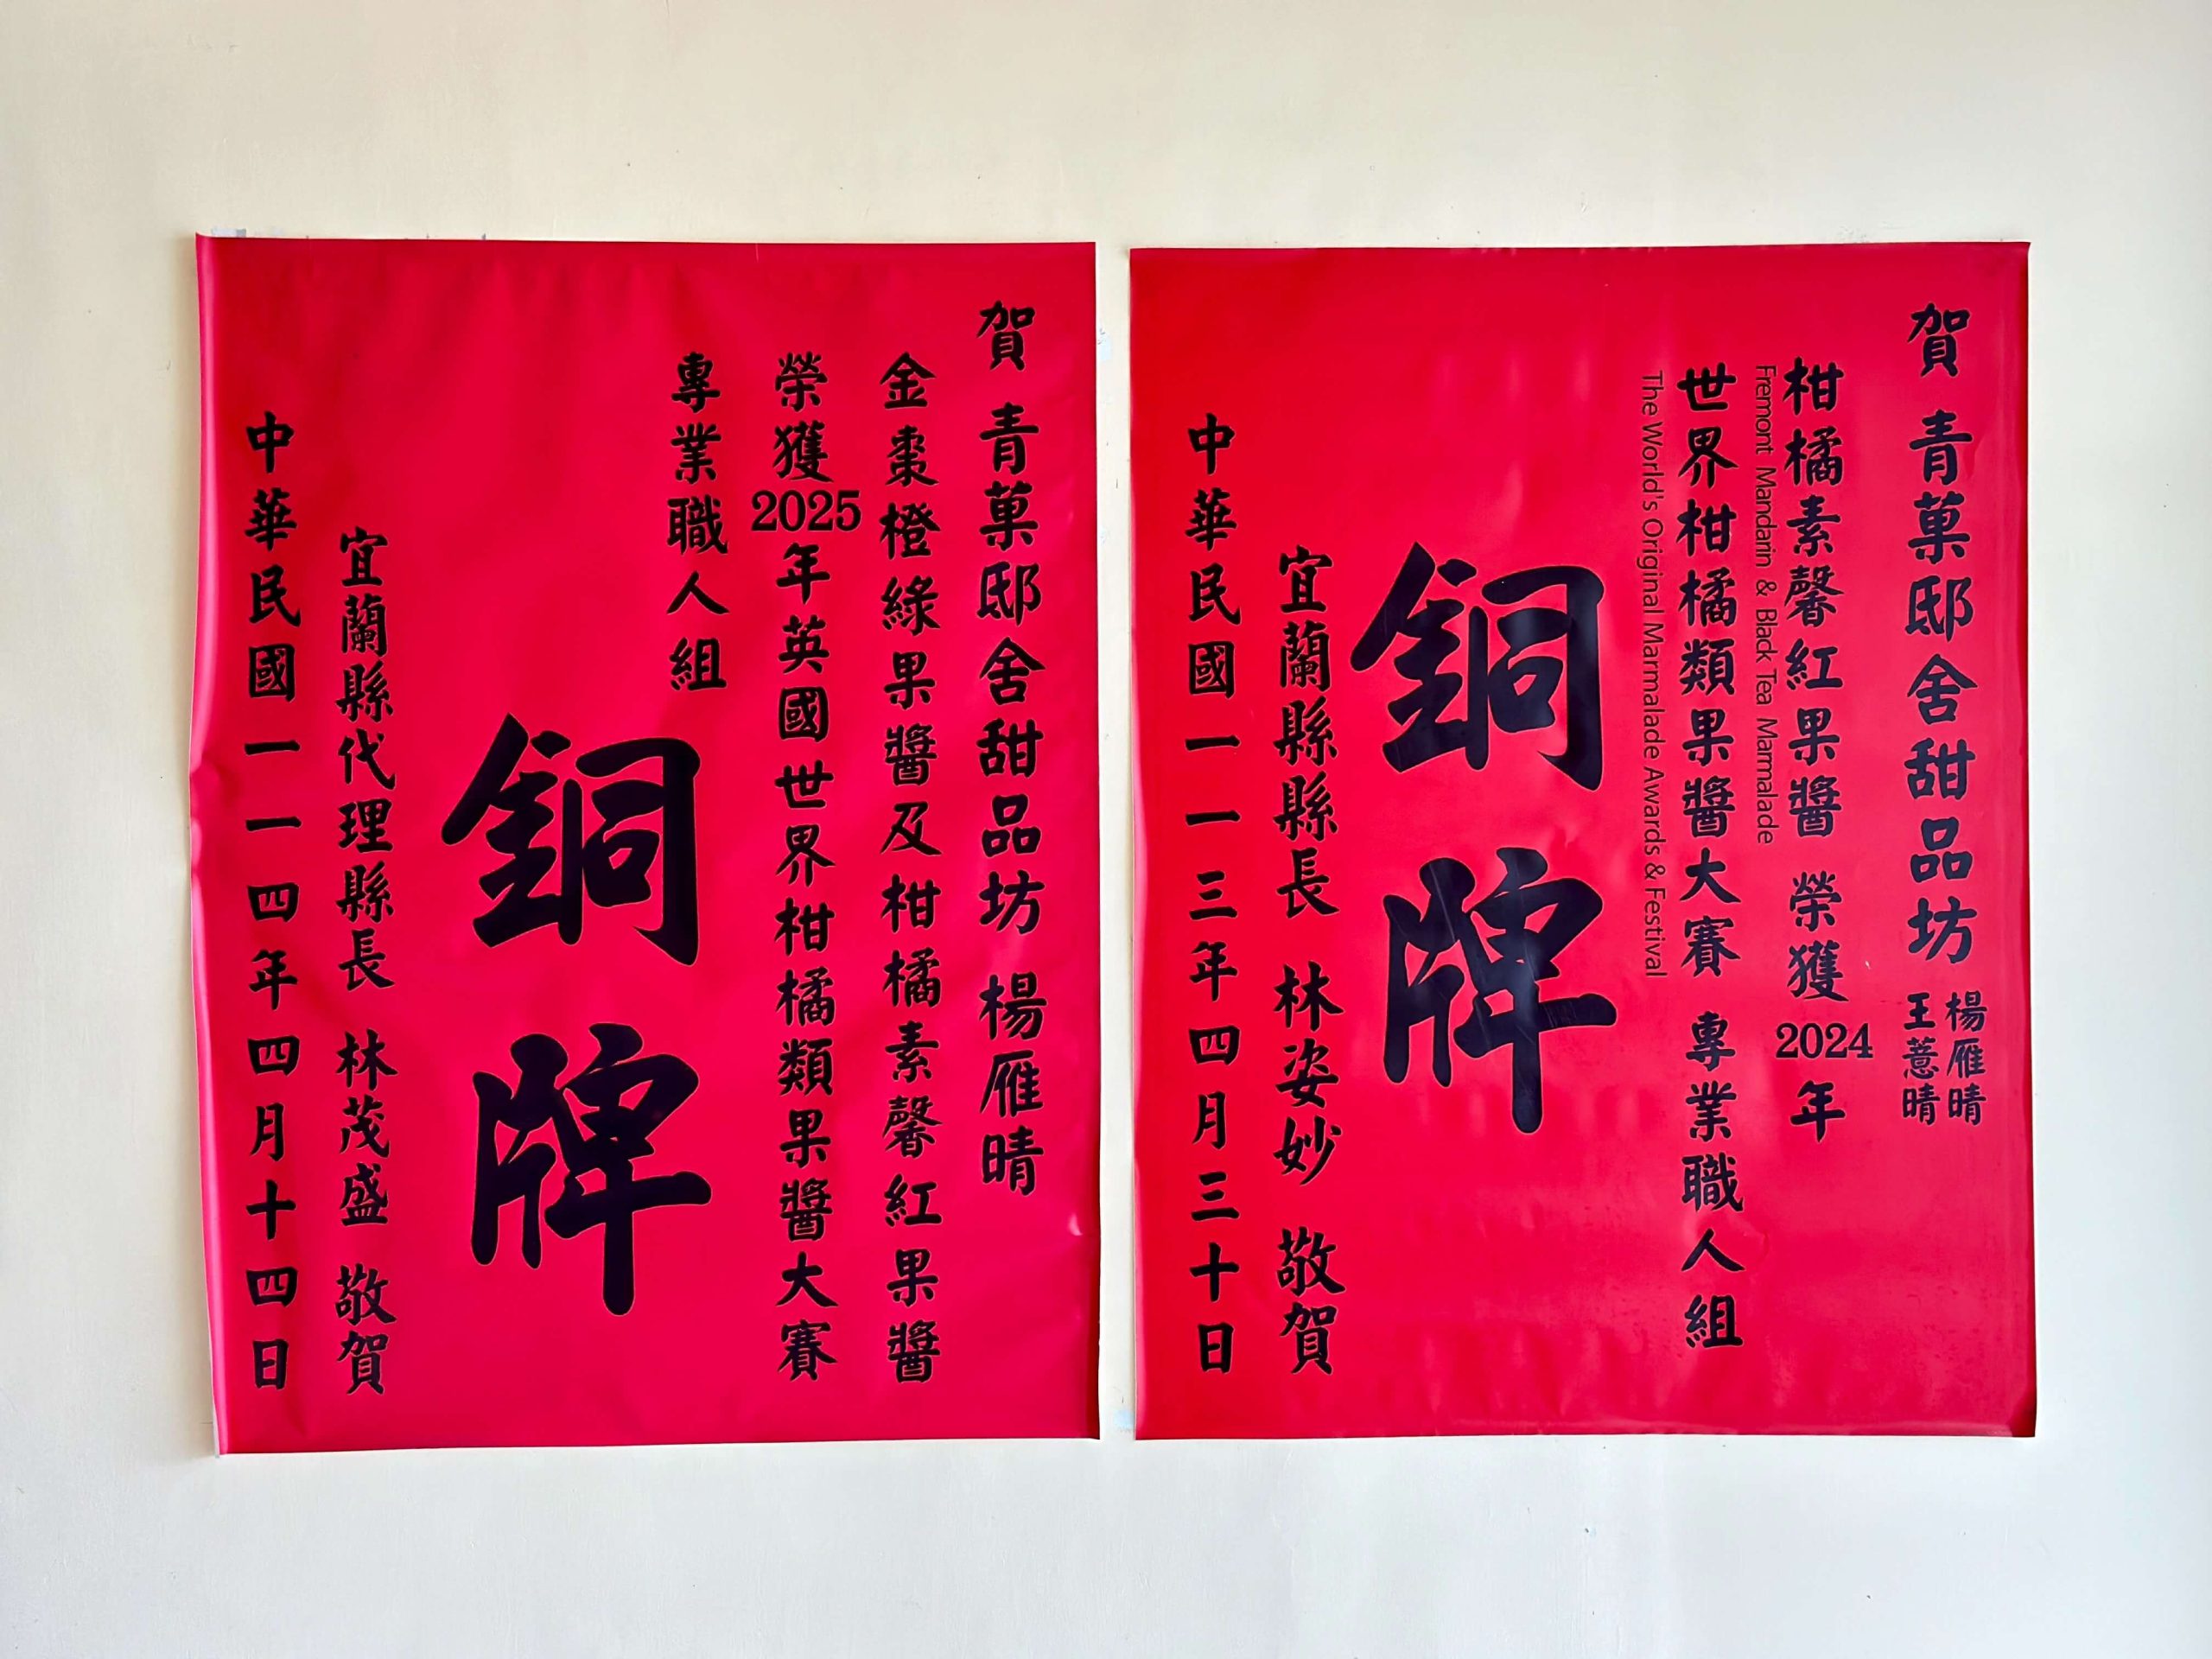 賀 青菓邸舍甜品坊 楊雁晴
王薏晴
柑橘素馨紅果醬 榮獲2024年
Fremont Mandarin & Black Tea Marmalade
世界柑橘類果醬大賽 專業職人組
The World's Original Marmalade Awards & Festival
銅牌
宜蘭縣縣長 林姿妙 敬賀
中華民國一一三年四月三十日
賀 青菓邸舍甜品坊 楊雁晴
金棗橙綠果醬及柑橘素馨紅果醬
榮獲2025年英國世界柑橘類果醬大賽
專業職人組
銅牌
宜蘭縣代理縣長 林茂盛 敬賀
中華民國一一四年四月十四日